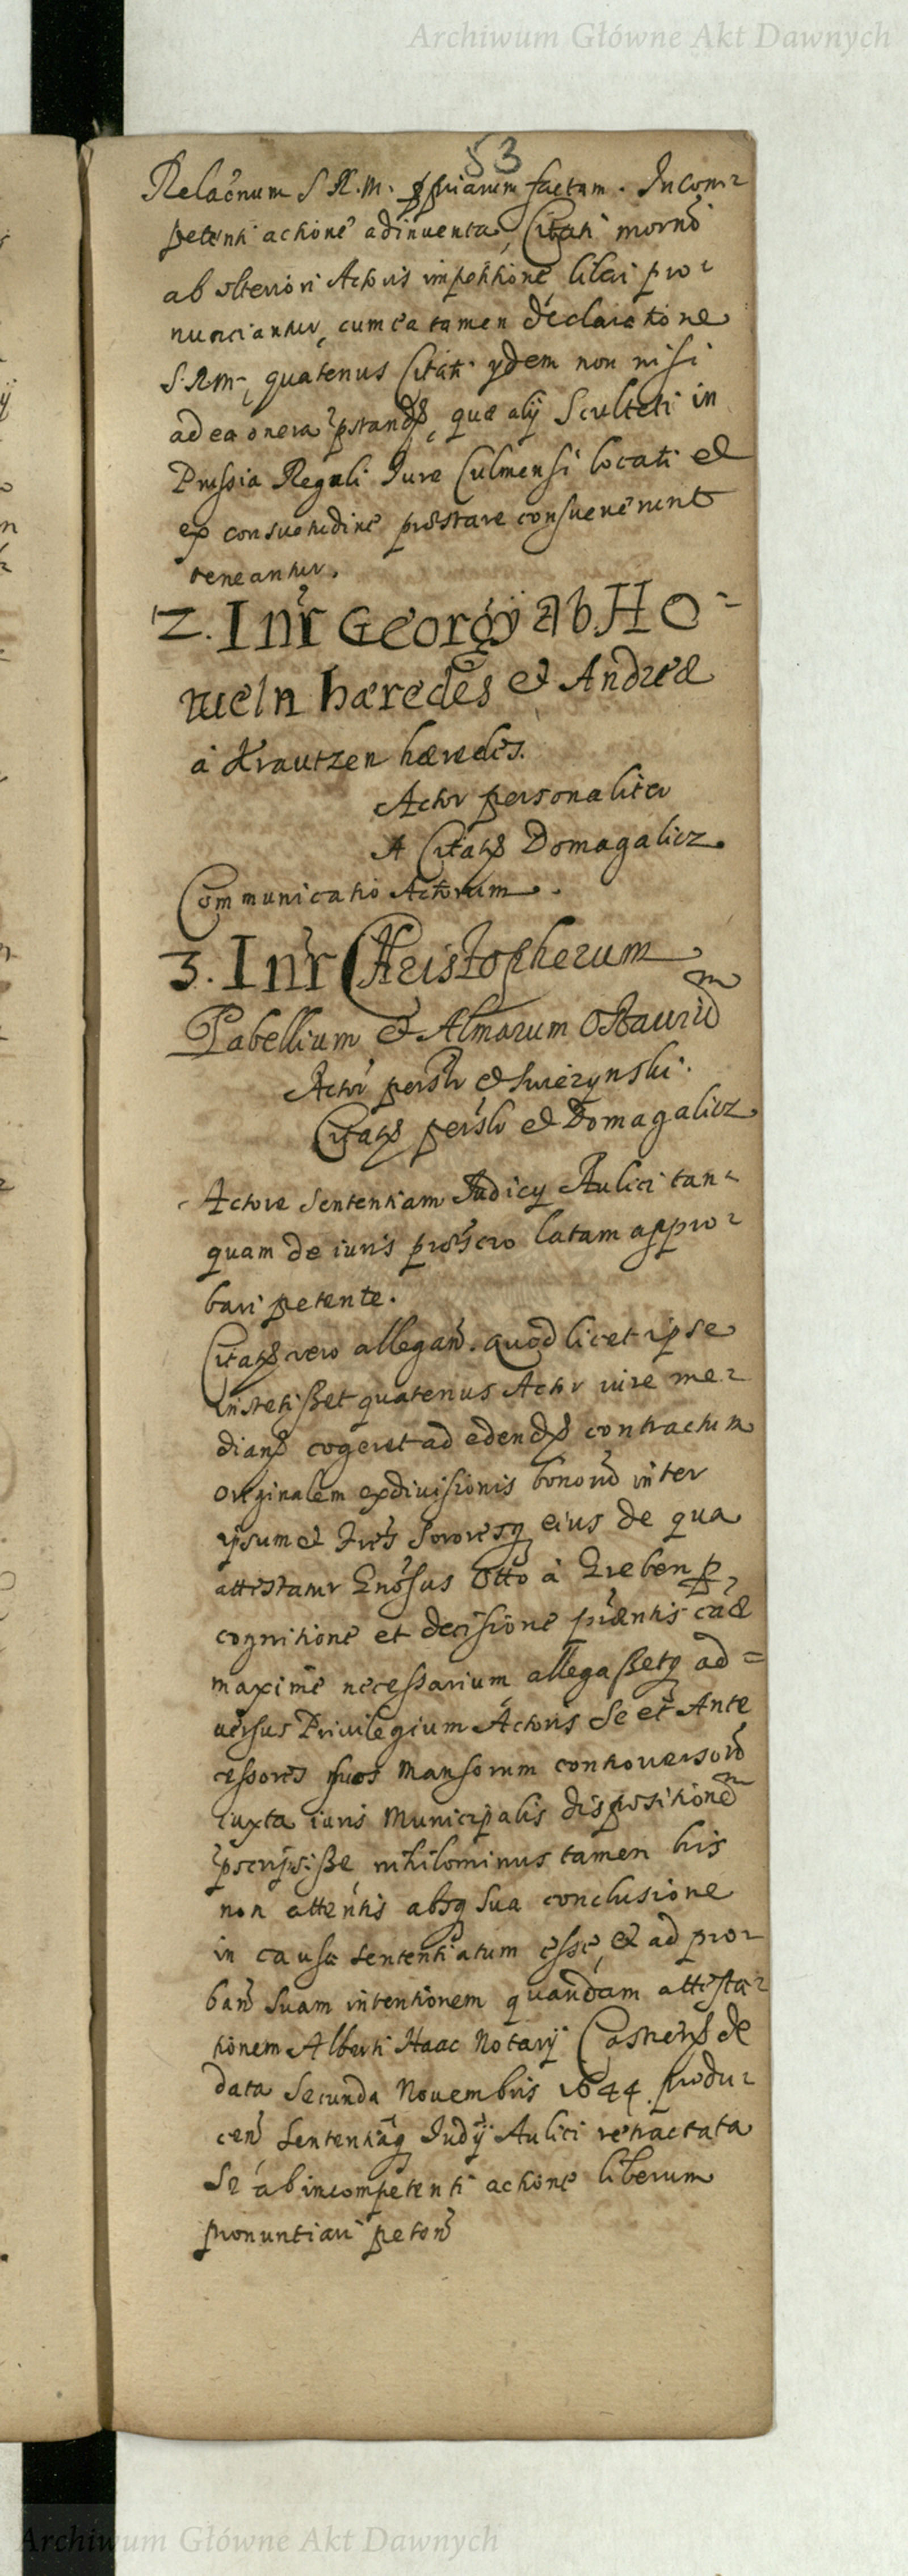 Archiwum Główne Akt Dawnych
53
Relacnum S R. M. ppriarum factam. Incom-
petenti actione adinventa, Citati morno
ab ulteriori Actoris impetitione liberi pro-
nunciantur, cum ea tamen declaratione
S. R. M., quatenus Citati ydem non nisi
ad ea onera pstanda, quæ alij Sculteti in
Prussia Regali Jure Culmensi locati et
ex consuetudine præstare consueverunt
teneantur.
2. Intr Georgij ab Ho-
weln hæredes et Andreæ
à Krautzen hæredes.
Actor personaliter
A Citatis Domagalicz.
Communicatio Actorum.
3. Intr Christopherum
Pabellium et Almarum
Actor persltr et Swieżynski.
Citatus persltr et Domagalicz
Actore Sententiam Judicij Aulici tan-
quam de iuris præscro latam appro-
bari petente.
Citatus vero allegan. quod licet ipse
institisset quatenus Actor iure me-
dians cogeret ad edendum contractum
originalem exdivisionis bonoru inter
ipsum et Fres Sororesq eius de qua
attestatur Gnosus Otto à Greben p
cognitione et decisione præntis caæ
maxime necessarium allegassetq ad=
versus Privilegium Actoris se et Ante
cessores suos Mansorum controversoru
iuxta iuris Municipalis dispositionem
pscripsisse, nihilominus tamen his
non attentis absq sua conclusione
in causa sententiatum esse, et ad pro-
ban suam intentionem quandam attesta-
tionem Alberti Haac Notarij Castrensis de
data Secunda Novembris 1644 produ-
cen Sententiaq Judij Aulici retractata
Se ab incompetenti actione liberum
pronuntiari peten
Archiwum Główne Akt Dawnych